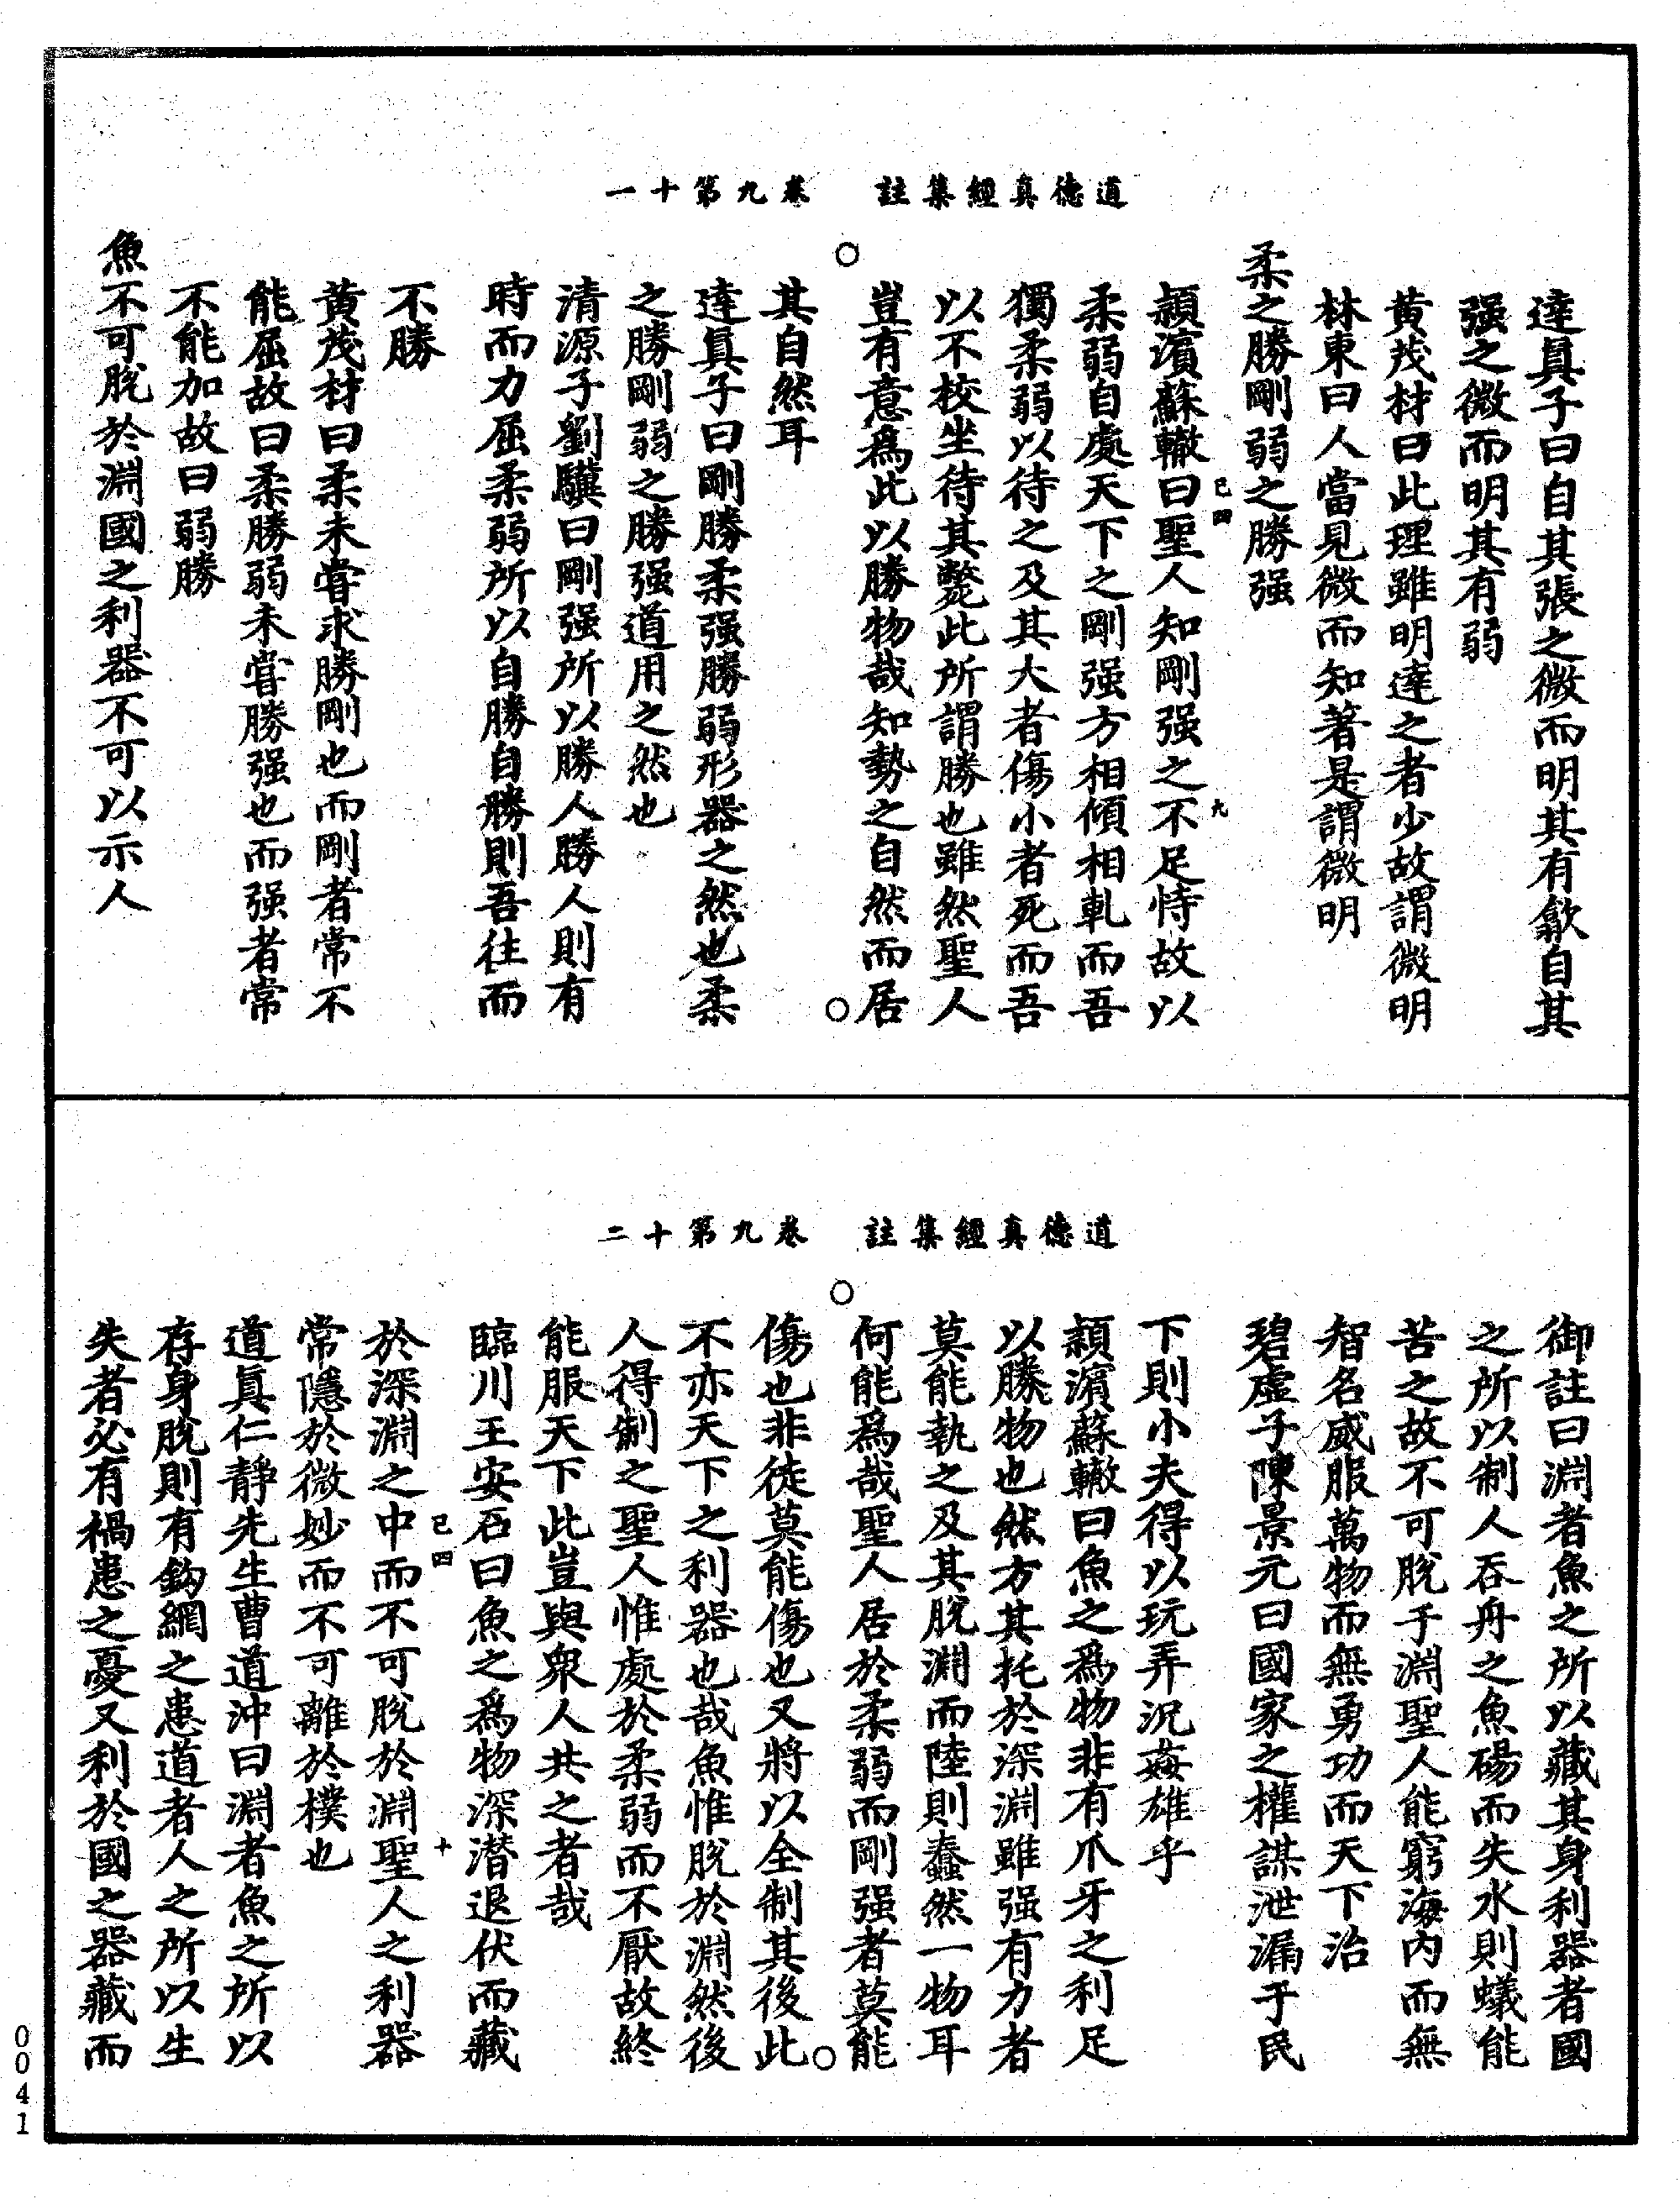 道德真經集註　卷九第十一
達眞子曰自其張之微而明其有歙自其
强之微而明其有弱
黄茂材曰此理雖明達之者少故謂微明
林東曰人當見微而知著是謂微明
柔之勝剛弱之勝强
潁濵蘇轍曰聖人知剛强之不足恃故以
己四　九
柔弱自處天下之剛强方相傾相軋而吾
獨柔弱以待之及其大者傷小者死而吾
以不校坐待其斃此所謂勝也雖然聖人
豈有意爲此以勝物哉知勢之自然而居
其自然耳
達眞子曰剛勝柔强勝弱形器之然也柔
之勝剛弱之勝强道用之然也
清源子劉驥曰剛强所以勝人勝人則有
時而力屈柔弱所以自勝自勝則吾往而
不勝
黄茂材曰柔未嘗求勝剛也而剛者常不
能屈故曰柔勝弱未嘗勝强也而强者常
不能加故曰弱勝
魚不可脫於淵國之利器不可以示人
道德真經集註　卷九第十二
御註曰淵者魚之所以藏其身利器者國
之所以制人吞舟之魚碭而失水則蟻能
苦之故不可脫于淵聖人能窮海内而無
智名威服萬物而無勇功而天下治
碧虚子陳景元曰國家之權謀泄漏于民
下則小夫得以玩弄況姦雄乎
潁濵蘇轍曰魚之爲物非有爪牙之利足
以勝物也然方其托於深淵雖强有力者
莫能執之及其脫淵而陸則蠢然一物耳
何能爲哉聖人居於柔弱而剛强者莫能
傷也非徒莫能傷也又將以全制其後此
不亦天下之利器也哉魚惟脫於淵然後
人得制之聖人惟處於柔弱而不厭故終
能服天下此豈與衆人共之者哉
臨川王安石曰魚之爲物深潜退伏而藏
己四　十
於深淵之中而不可脫於淵聖人之利器
常隱於微妙而不可離於樸也
道眞仁靜先生曹道沖曰淵者魚之所以
存身脫則有鈎網之患道者人之所以生
失者必有禍患之憂又利於國之器藏而
0041